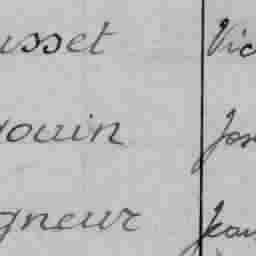 usset Vic
ouin Jos
gneur Jean